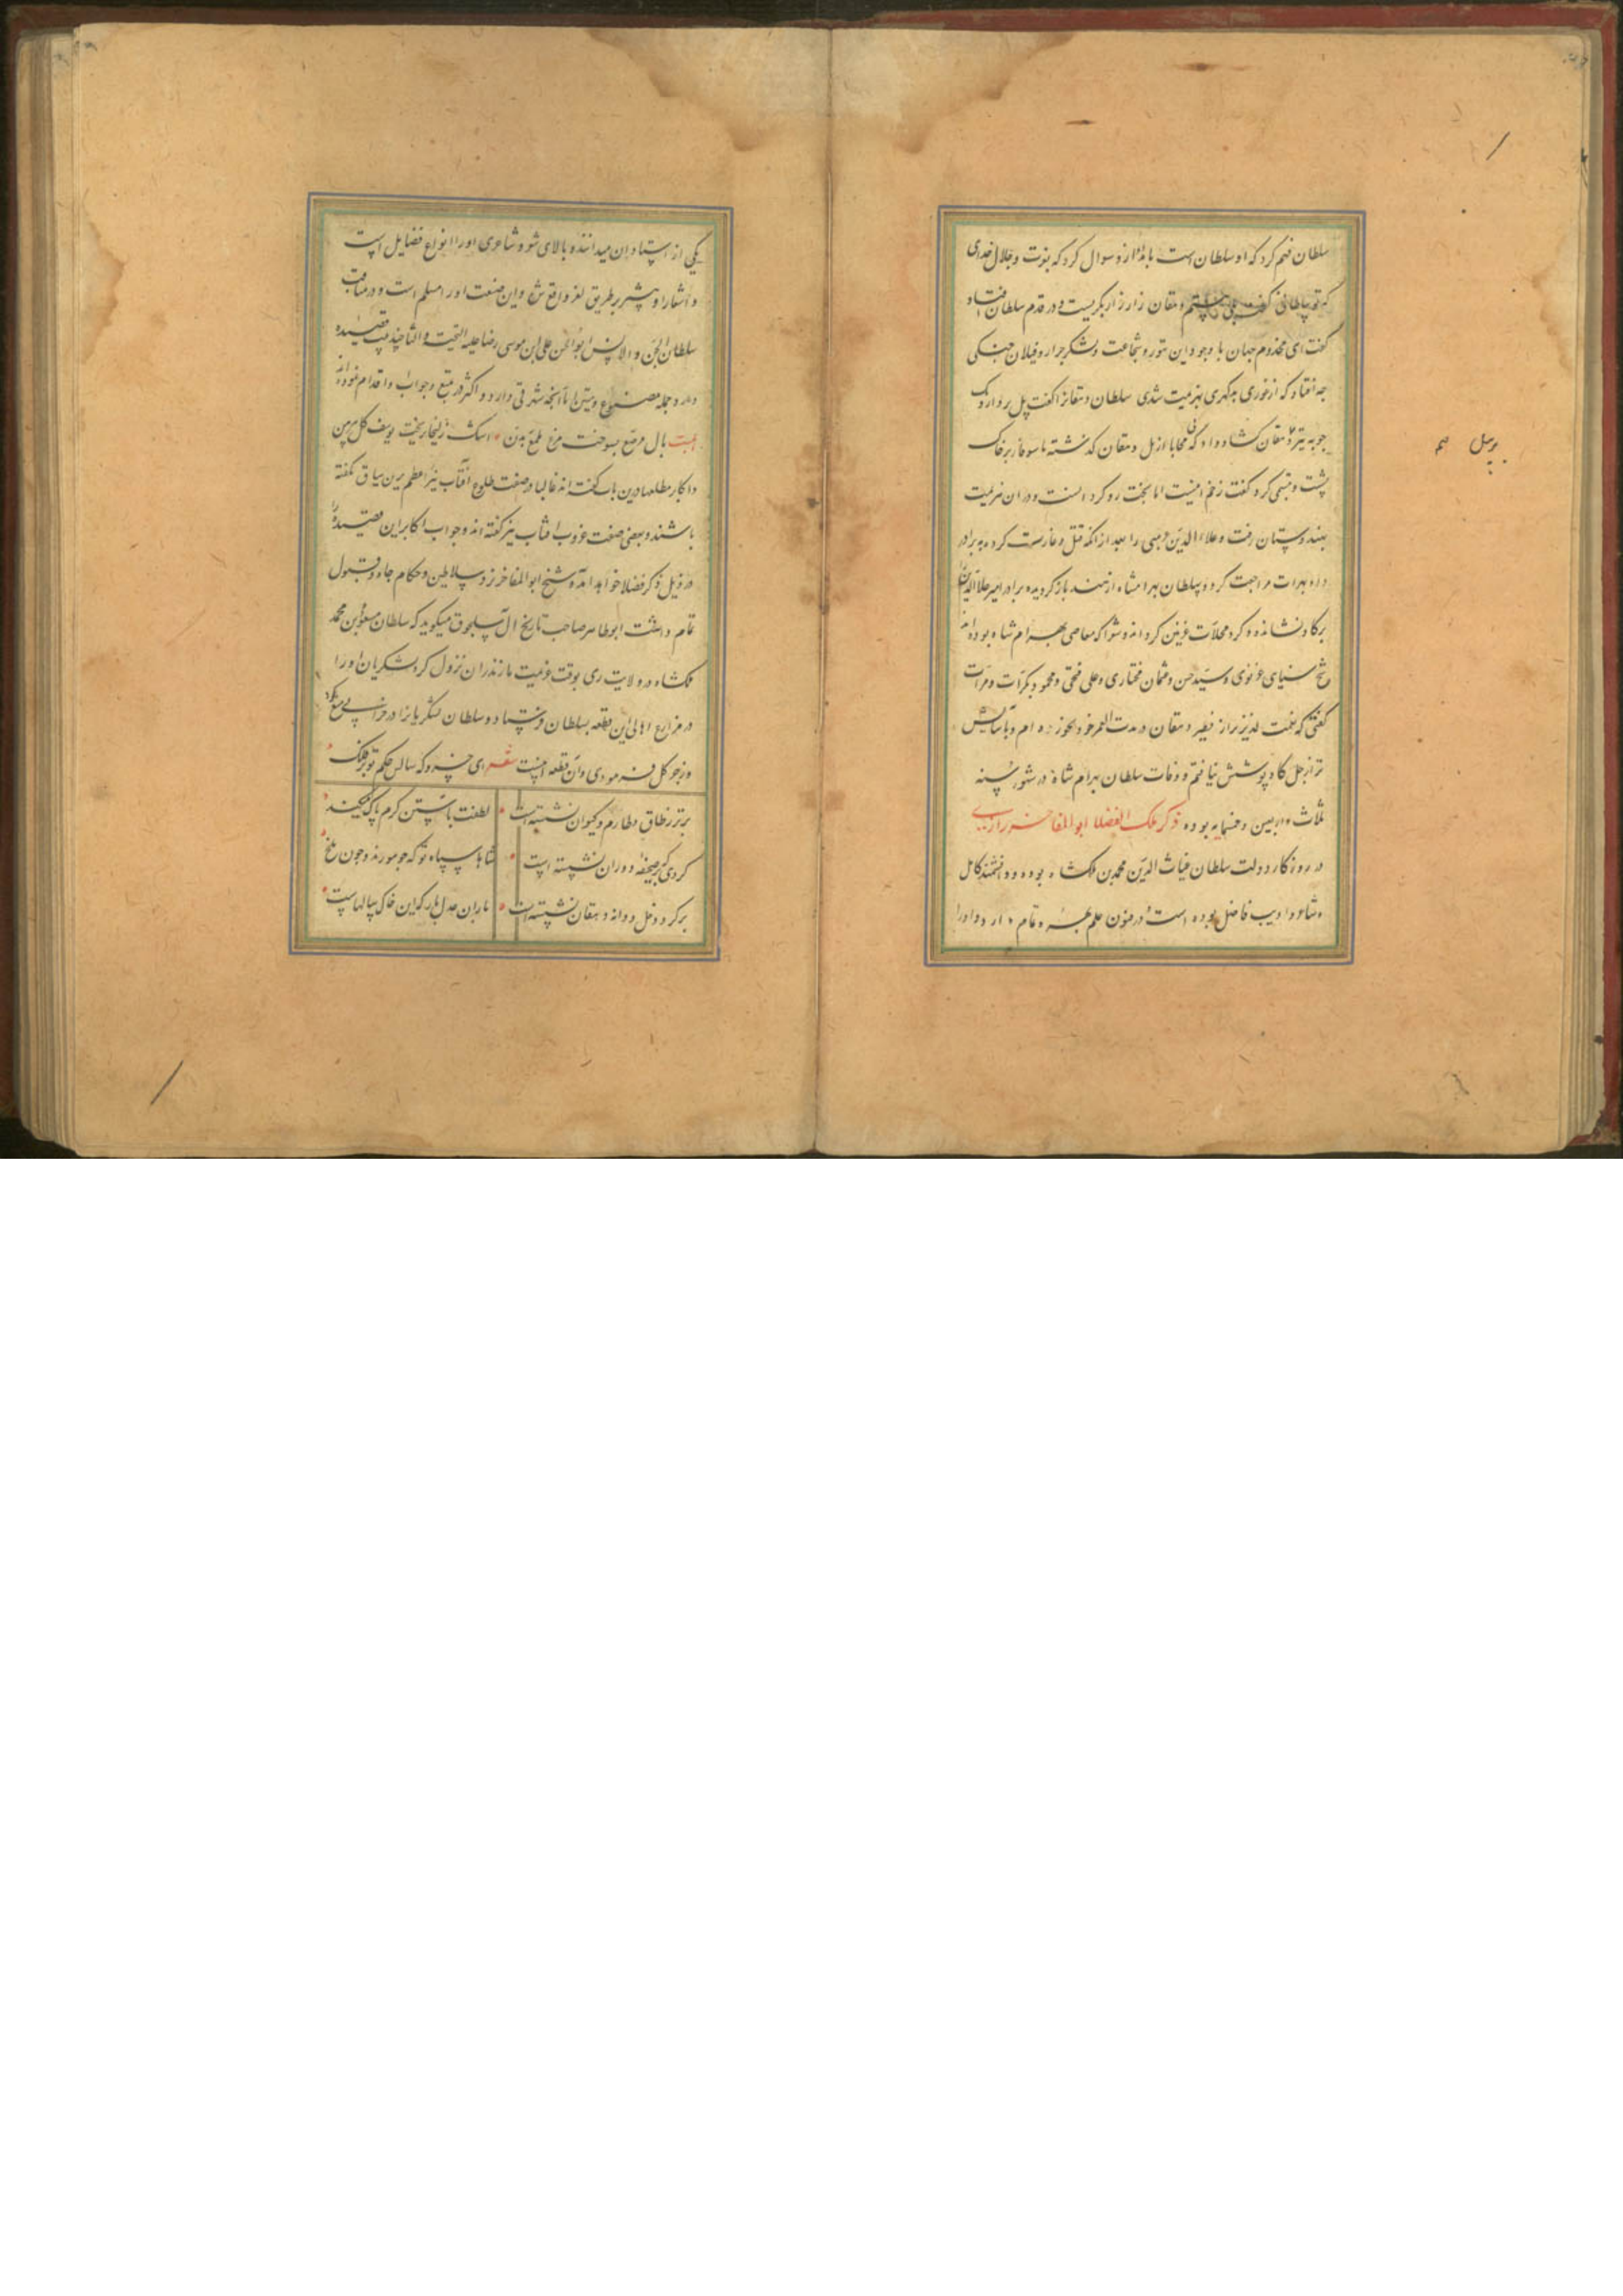 سلطان فهم کرد که او سلطان است بامداد ازو سوال کرد که بعزت و جلال خدای
که تو سلطانی گفت بلی هستم دهقان زار زار بگریست و در قدم سلطان افتاد
گفت ای مخدوم جهان با وجود این تهور و شجاعت و لشکر جرار و فیلان جنکی
جه افتاد که از غوری بدکهری بهزیمت شدی سلطان دهقانرا گفت پل بردار و یک
جوبه تیر دهقان کشاد داد که بی محابا از پل دهقان کذشته تا سوفار بر خاک
نشست و تبسمی کرد گفت زخم اینست اما بخت رو کردانست و در ان هزیمت
بهندوستان رفت و علاء الدین جهی را بعد از انکه قتل و غارت کرده به برادر
داد بهرات مراجعت کرد و سلطان بهرامشاه از هند باز کردیده برادر امیر علا الدین را
بر کاو نشانده و کرد محلات غزنین کردانده و شعرا که معاصر بهرام شاه بوده اند
شیخ سنایی غزنوی و سید حسن و عثمان مختاری و علی فتحی و محمود بکرات و مرات
گفتی که نعمت لذیذ تر از فطیر دهقان در مدت العمر خود نخورده ام و با آسایش
تر از جل کاو پوشش نیافتم و وفات سلطان بهرام شاه در شهور سنه
ثلث و اربعین و خمسمایه بوده ذکر ملک الفضلا ابو المفاخر رازی
در روزکار دولت سلطان غیاث الدین محمد بن ملکشاه بوده و دانشمند کامل
و شاعر و ادیب فاضل بوده است و در فنون علم بهره تمام دارد و او را
یکی از استادان میدانند و بالای شیوه شاعری او را انواع فضایل است
و اشعار او بیشتر بر طریق لغز واقع شد و این صنعت اورا مسلم است و در مناقب
سلطان الجن و الانس ابو الحسن علی ابن موسی رضا علیه التحیت و الثنا چند قصیده
دارد و جمله مصنوع و متین اما آنچه شهرتی دارد و اکثر در تتبع و جواب او اقدام نموده اند
بیت بال مرصع بسوخت مرغ ملمع بدن اشک زلیخا بریخت یوسف کل پیرهن
و اکابر مطلعها درین باب گفته اند غالبا در صفت طلوع آفتاب نیز اعظم برین سیاق نکفته
باشند و بعضی صفت غروب افتاب نیز کفته اند و جواب اکابر این قصیده را
در ذیل ذکر فضلا خواهد آمد و شیخ ابو المفاخر نزد سلاطین و حکام جاه و قبول
تمام داشت ابو طاهر صاحب تاریخ ال سلجوق میکوید که سلطان مسعود بن محمد
ملکشاه در ولایت ری بوقت عزیمت مازندران نزول کرد لشکریان او را
در مزارع اهالی این قطعه بسلطان فرستاد و سلطان لشکریانرا در خرابی منع کرد
و زجر کل فرمودی و آن قطعه اینست شعر ای خسرو که سالس حکم تو بر فلک
برتر ز طاق و طارم و کیوان نشسته است لطفت باستین کرم پاک میکند
کردی که بر صحیفه دوران نشسته است شاها سپاه تو که جو مورند و جون ملخ
بر کرد دخل و دانه دهقان نشسته است باران عدل بار که این خاک سالهاست
برسل صح